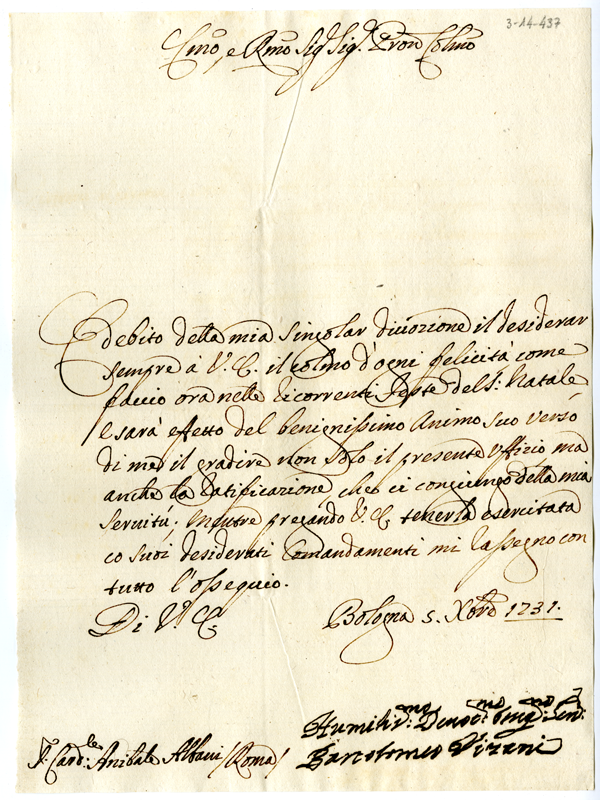 3-14-437
Emo, e Rmo Sigr Sigr Pron Colmo
È debito della mia singolar divozione il desiderar
sempre à V. E. il colmo d'ogni felicità come
faccio ora nelle ricorrenti Feste del S. Natale
E sarà effetto del benignissimo Animo suo verso
di me il gradire non solo il presente Uffizio ma
anche la ratificazione che ci congiungo della mia
servitù; Mentre pregando V. E. tenerla esercitata
co suoi desiderati Comandamenti mi rassegno con
tutto l'ossequio.
Di V. E.
Bologna 5. Xbre 1731.
Humiliss.mo Devot.mo Obligmo
S. Card.le Anibale Albani (Roma)
Bartolomeo